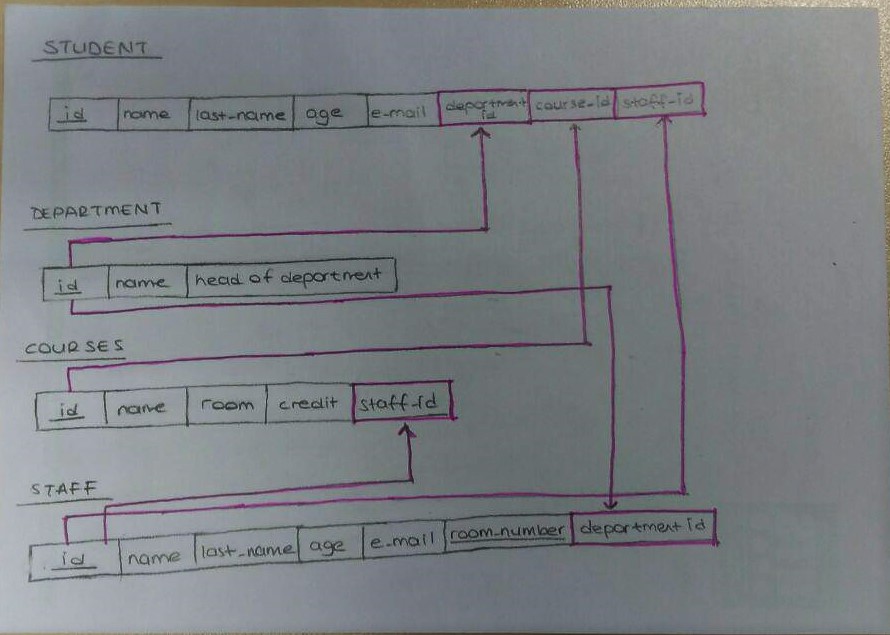 STUDENT
id name last-name age e-mail department id course-id staff-id
DEPARTMENT
id name head of department
COURSES
id name room credit staff-id
STAFF
id name last-name age e-mail room-number department id